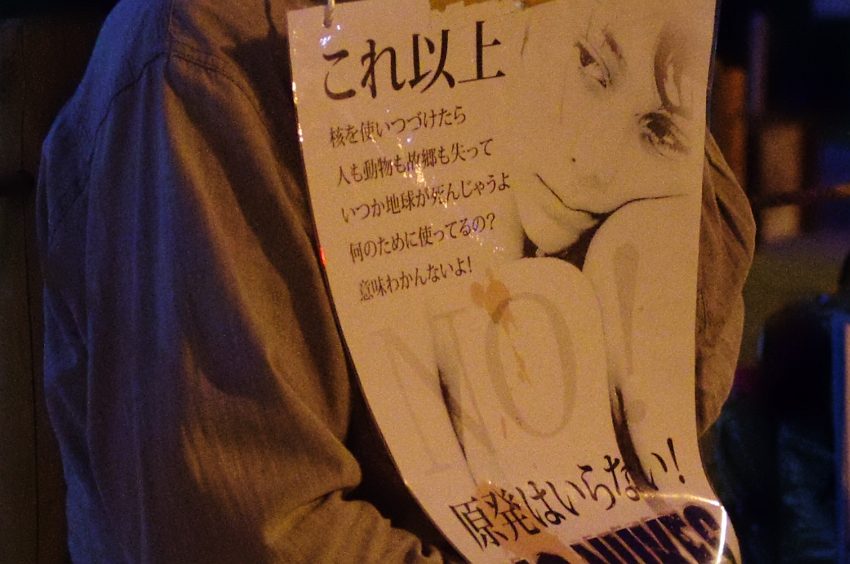 これ以上
核を使いつづけたら
人も動物も故郷も失って
いつか地球が死んじゃうよ
何のために使ってるの?
意味わかんないよ!
NO!
原発はいらない!
NUKES